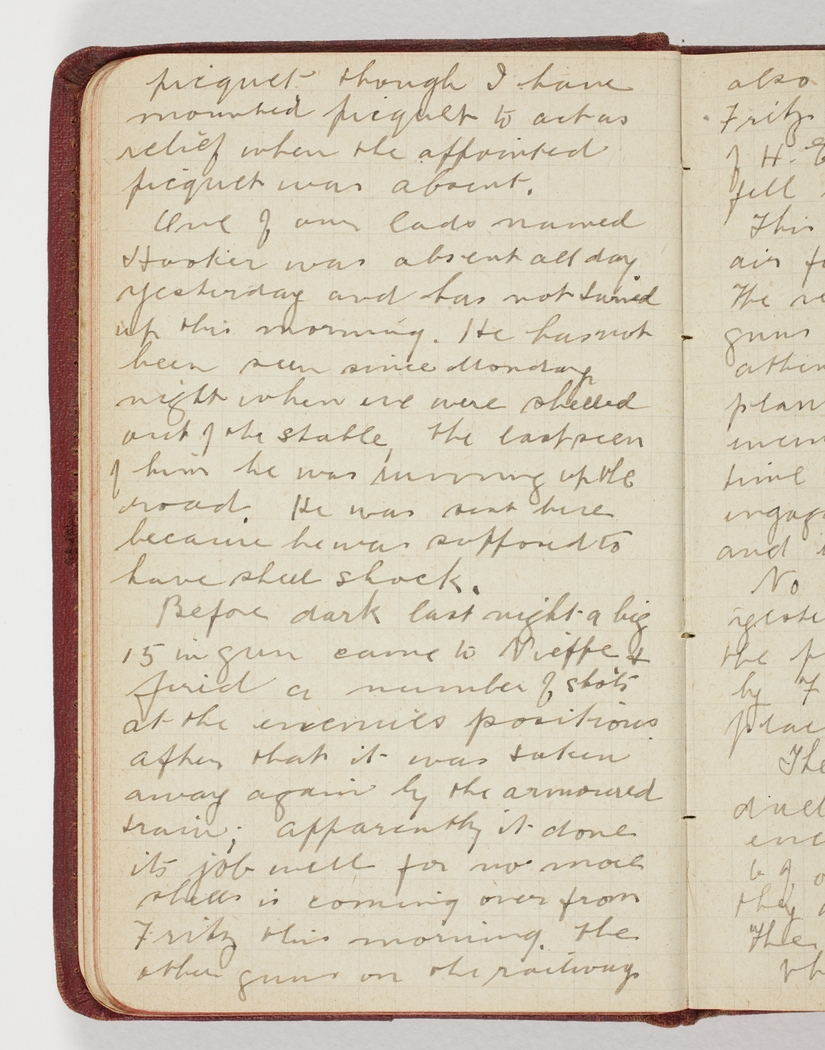 picquet though I have
mounted picquet to act as
relief when the appointed
picquet was absent.
One of our lads named
Hooker was absent all day
yesterday and has not turned
up this morning. He has not
been seen since Monday
night when we were shelled
out of the stable, the last seen
of him he was running up the
road. He was sent here
because he was supposed to
have shell shock.
Before dark last night a big
15 in gun came to Nieppe &
fired a number of shots
at the enemies positions
after that it was taken
away again by the armoured
train; apparently it done
its job well for no more
shells is coming over from
Fritz this morning. the
other guns on the railway
also
Fritz
of H.
fell
This
air
The
guns
plan
time
and
No
the
by F
The
they